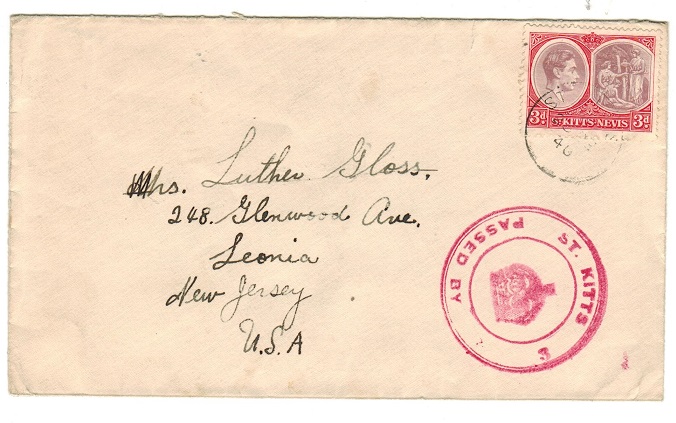 3d ST KITTS-NEVIS 3d
40
Mrs. Luther Gloss.
248. Glenwood Ave.
Leonia
New Jersey
U.S.A
PASSED BY
ST. KITTS
3